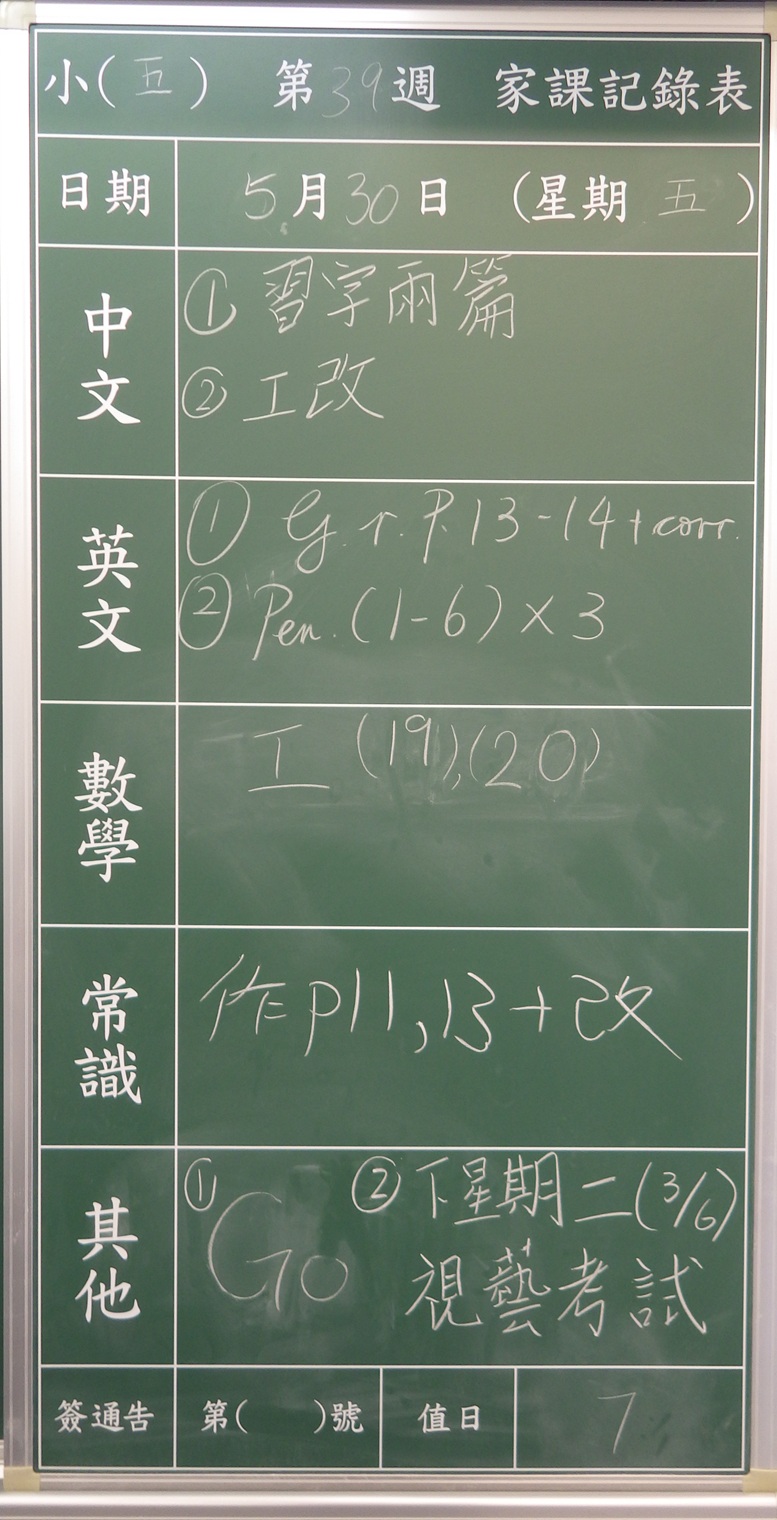 小(五) 第39週 家課記錄表
日期 5月30日 (星期五)
中文
① 習字兩篇
② 工改
英文
① G.r. P.13-14+corr.
② Pen. (1-6)×3
數學
工 (19),(20)
常識
作p11,13+改
其他
① Go ② 下星期二(3/6)
視藝考試
簽通告 第( )號 值日 7